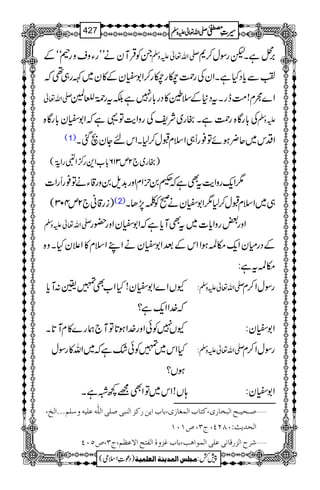 سیرتِ مصطفیٰ صلی اللہ تعالیٰ علیہ وسلم 427
ہر جگہ ہے۔ لیکن رسول کریم صلی اللہ تعالیٰ علیہ وسلم جن کو قرآن نے ’’رء وف و رحیم‘‘ کے
لقب سے یاد کیا ہے۔ ان کی رحمت چمکار چمکار کر ابوسفیان کے کان میں کہہ رہی تھی کہ
اے مجرم! مت ڈر۔ یہ دنیا کے سلاطین کا دربار نہیں ہے بلکہ یہ رحمۃ للعالمین صلی اللہ تعالیٰ
علیہ وسلم کی بارگاہ رحمت ہے۔ بخاری شریف کی روایت تو یہی ہے کہ ابوسفیان بارگاہ
اقدس میں حاضر ہوئے تو فوراً ہی اسلام قبول کرلیا۔ اس لئے جان بچ گئی۔ (1)
(بخاری ج۲ ص۶۱۳ باب این رکز النبی رایۃ)
مگر ایک روایت یہ بھی ہے کہ حکیم بن حزام اور بدیل بن ورقاء نے تو فوراً رات
ہی میں اسلام قبول کرلیا مگر ابوسفیان نے صبح کو کلمہ پڑھا۔ (2) (زرقانی ج۲ ص۳۰۴)
اور بعض روایات میں یہ بھی آیا ہے کہ ابوسفیان اور حضور صلی اللہ تعالیٰ علیہ وسلم
کے درمیان ایک مکالمہ ہوا اس کے بعد ابوسفیان نے اپنے اسلام کا اعلان کیا۔ وہ
مکالمہ یہ ہے:
رسول اکرم صلی اللہ تعالیٰ علیہ وسلم: کیوں اے ابوسفیان! کیا اب بھی تمہیں یقین نہ آیا
کہ خدا ایک ہے؟
ابوسفیان: کیوں نہیں کوئی اور خدا ہوتا تو آج ہمارے کام آتا۔
رسول اکرم صلی اللہ تعالیٰ علیہ وسلم: کیا اس میں تمہیں کوئی شک ہے کہ میں اللہ کا رسول
ہوں؟
ابوسفیان: ہاں! اس میں تو ابھی مجھے کچھ شبہ ہے۔
صحیح البخاری، کتاب المغازی، باب این رکز النبی صلی اللہ علیہ وسلم...الخ،
الحدیث: ۴۲۸۰، ج۳، ص۱۰۱
شرح الزرقانی علی المواھب، باب غزوۃ الفتح الاعظم، ج۳، ص۴۰۵
پیش کش: مجلس المدینۃ العلمیۃ (دعوتِ اسلامی)